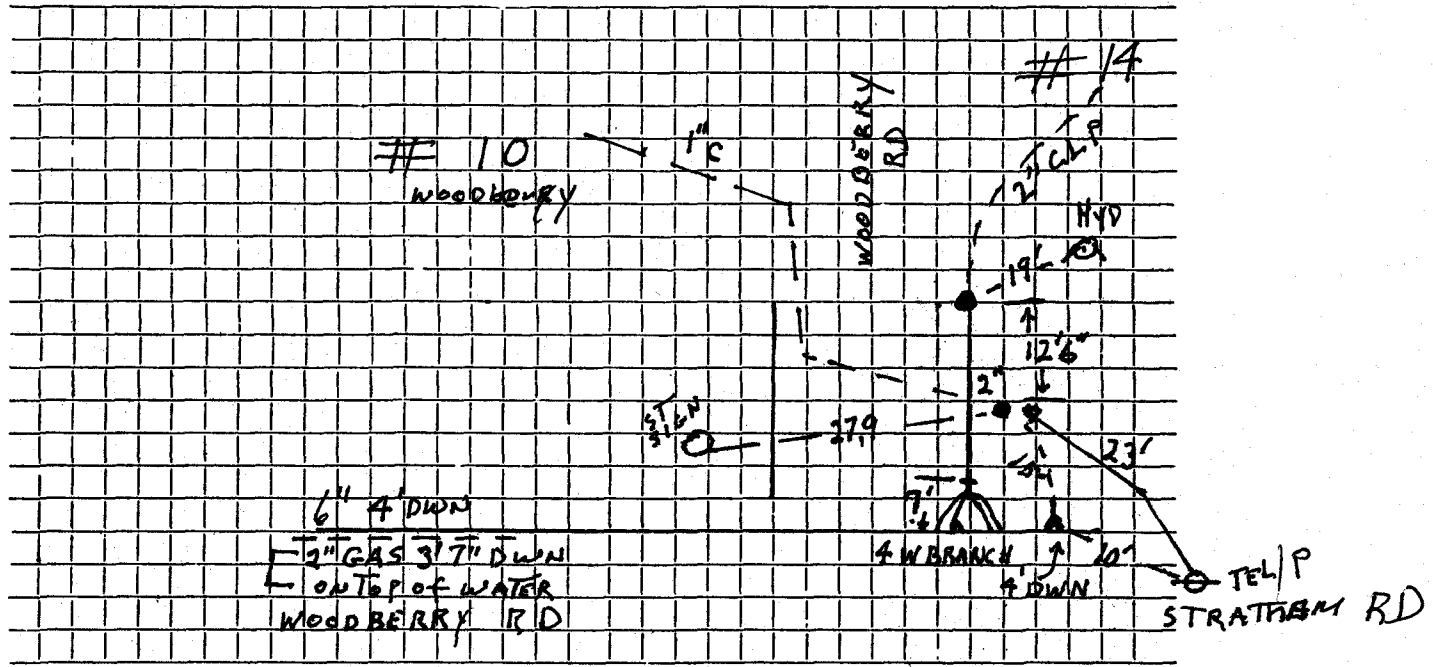 # 14
# 10
woodberry
1" C
WOODBERRY
RD
HYD
19'
12'6"
2"
ST
SIGN
27,9
23'
7'
6" 4' DWN
2" GAS 3' 7" DWN
ON TOP OF WATER
WOODBERRY RD
4 W BRANCH
4' DWN
10'
TEL/P
RD